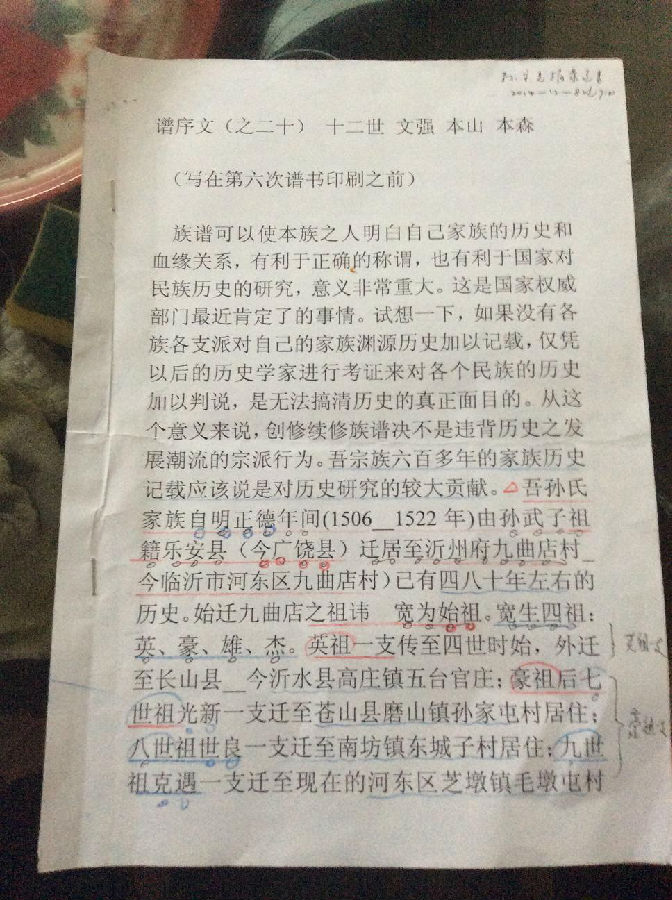 2014-12-8
谱序文（之二十） 十二世 文强 本山 本森
（写在第六次谱书印刷之前）
族谱可以使本族之人明白自己家族的历史和
血缘关系，有利于正确的称谓，也有利于国家对
民族历史的研究，意义非常重大。这是国家权威
部门最近肯定了的事情。试想一下，如果没有各
族各支派对自己的家族渊源历史加以记载，仅凭
以后的历史学家进行考证来对各个民族的历史
加以判说，是无法搞清历史的真正面目的。从这
个意义来说，创修续修族谱决不是违背历史之发
展潮流的宗派行为。吾宗族六百多年的家族历史
记载应该说是对历史研究的较大贡献。吾孙氏
家族自明正德年间(1506__1522 年)由孙武子祖
籍乐安县（今广饶县）迁居至沂州府九曲店村_
今临沂市河东区九曲店村）已有四八十年左右的
历史。始迁九曲店之祖讳 宽为始祖。宽生四祖：
英、豪、雄、杰。英祖一支传至四世时始，外迁
英祖文
至长山县__今沂水县高庄镇五台官庄；豪祖后七
世祖光新一支迁至苍山县磨山镇孙家屯村居住；
豪祖文
八世祖世良一支迁至南坊镇东城子村居住；九世
祖克遇一支迁至现在的河东区芝墩镇毛墩屯村